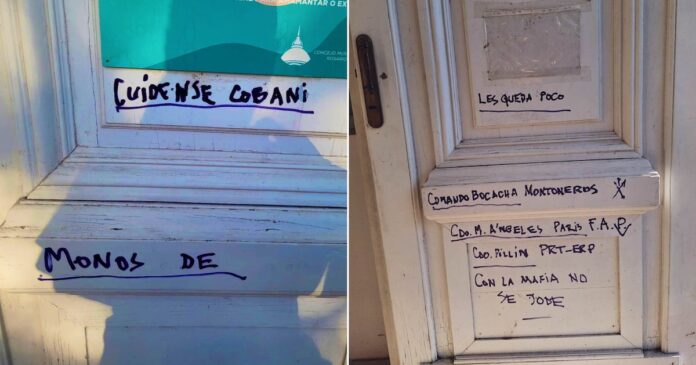 AMANTAR O EX
CONCEJO MUN
ROSARIO
CUÍDENSE COBANI
MONOS DE
LES QUEDA POCO
COMANDO BOCACHA MONTONEROS
CDO. M. ÁNGELES PARIS F.A.P
CDO. PILLÍN PRT-ERP
CON LA MAFIA NO
SE JODE